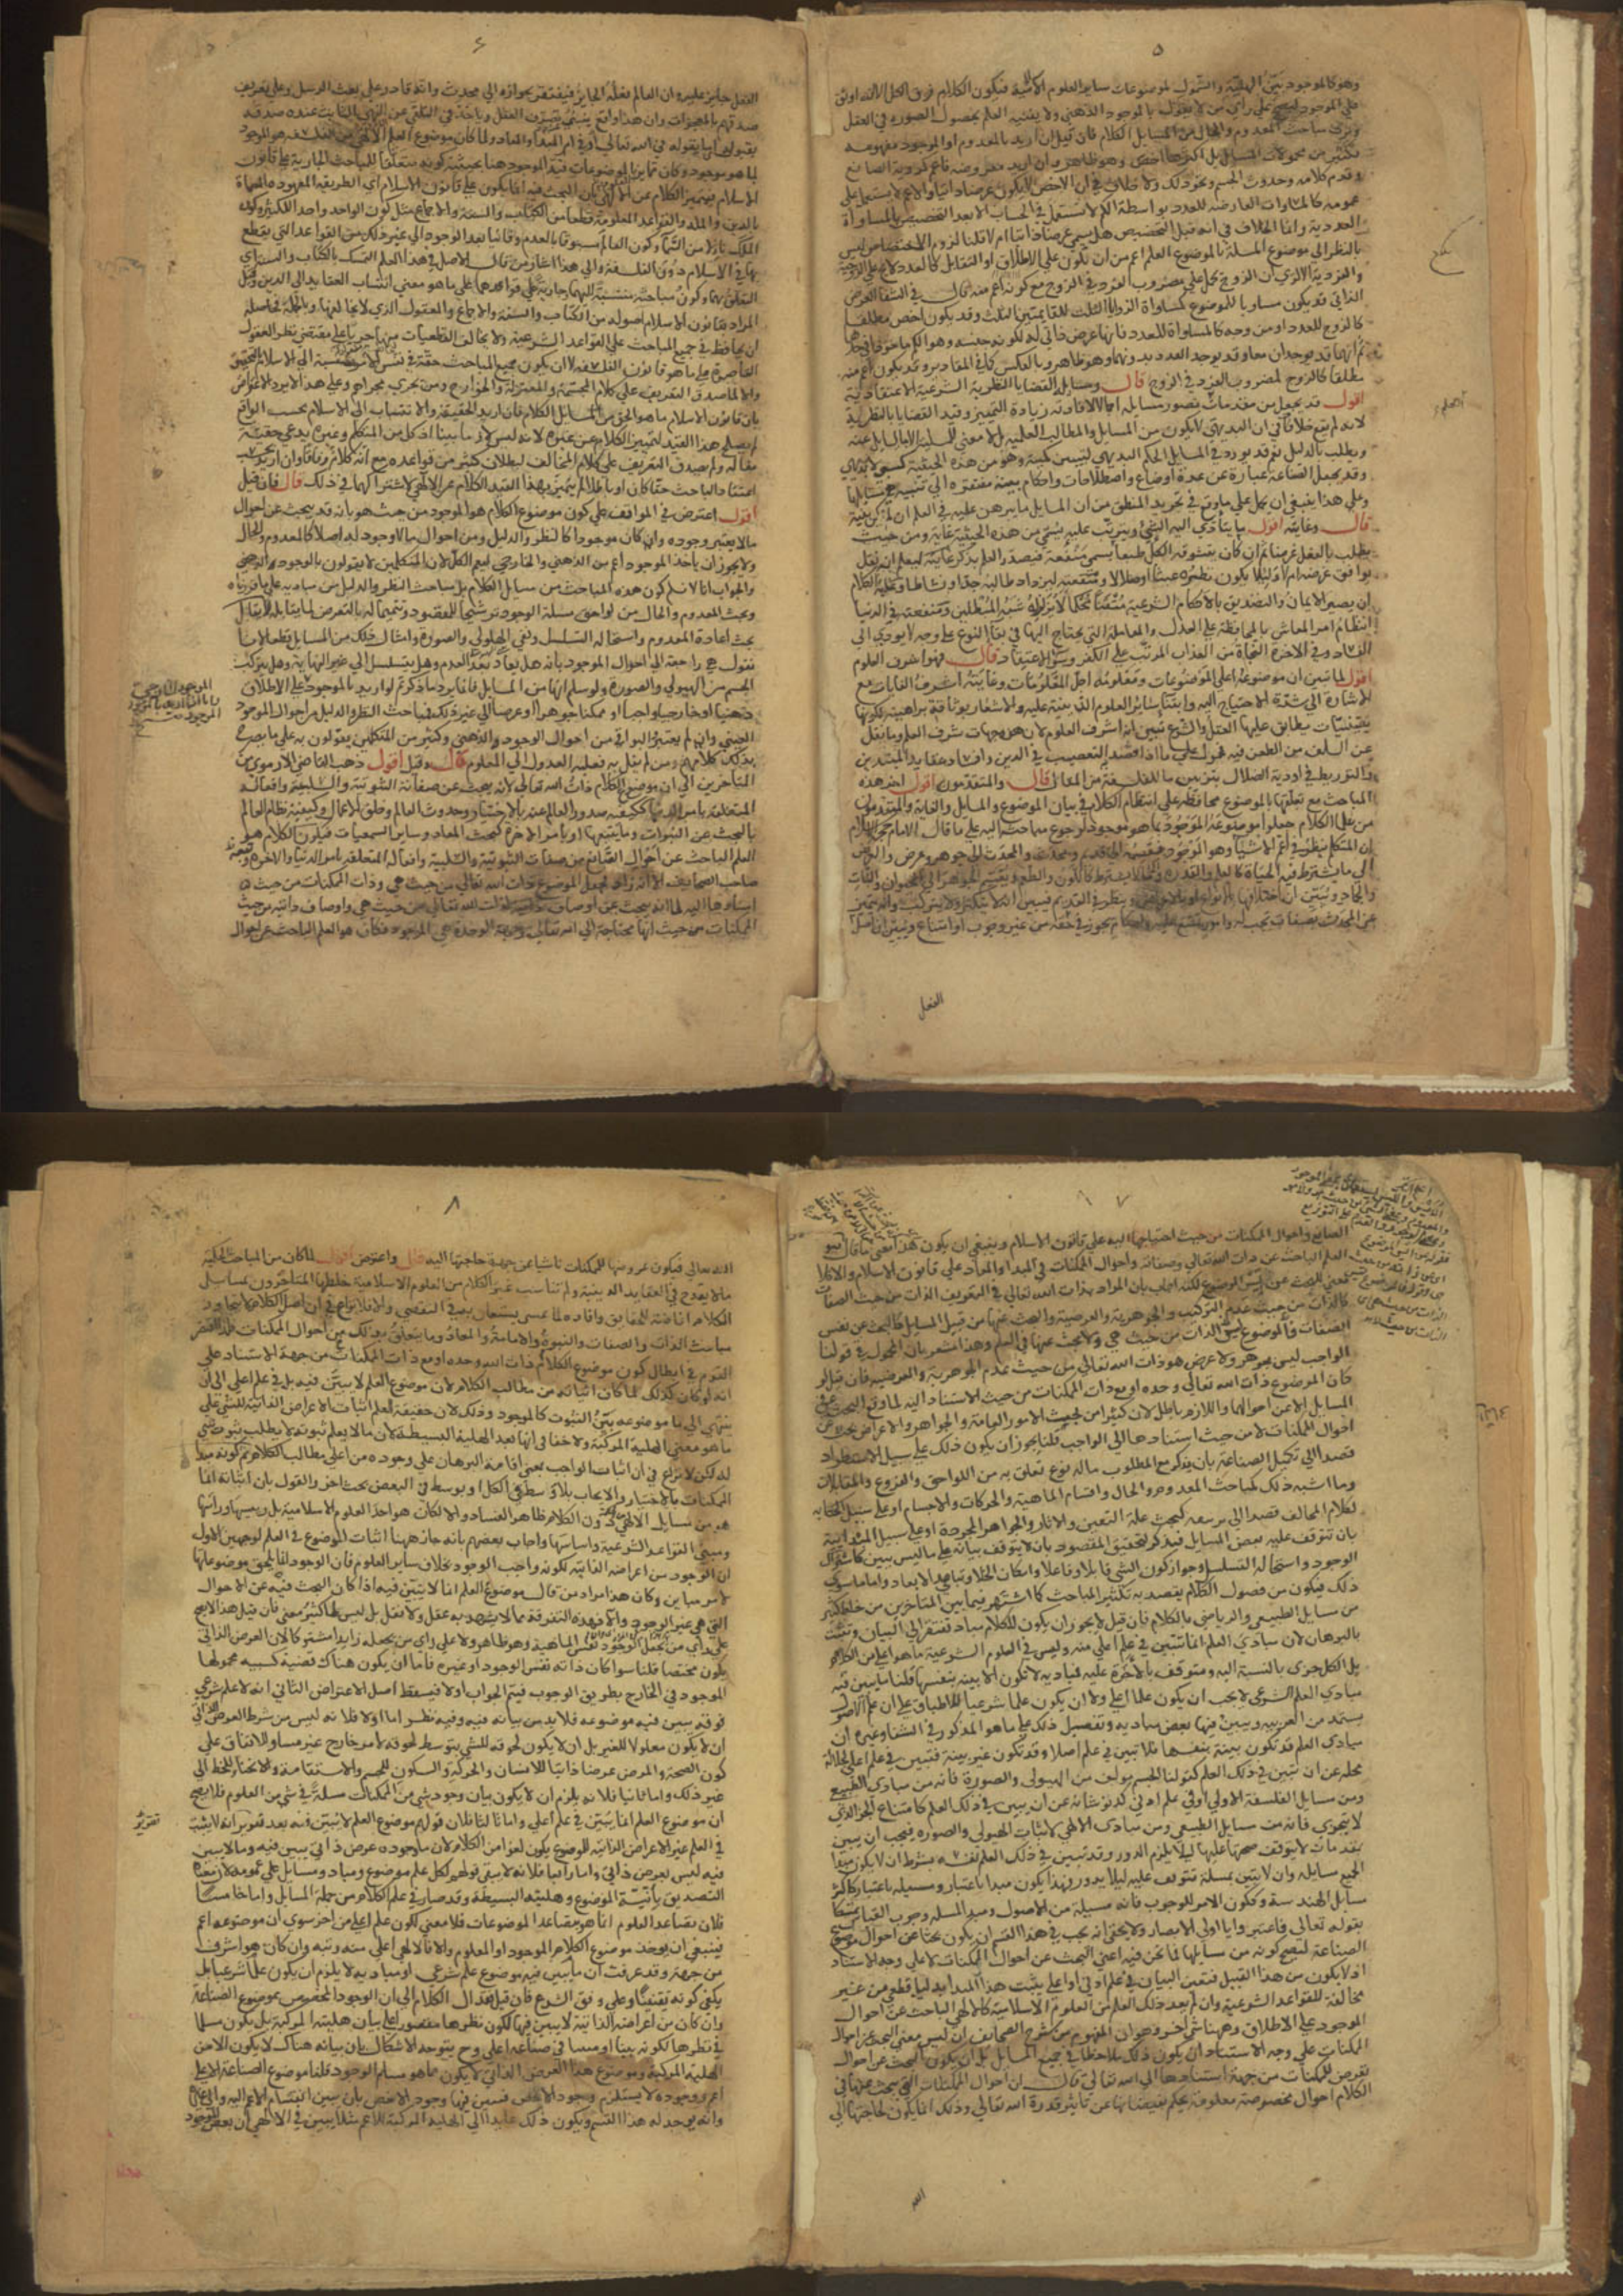 ٥
وهو كالموجود بين الهلية والشمول لموضوعات سائر العلوم الاسلامية فيكون الكلام فوق الكل الا انه اوثق
على الموجود ليصح على رأي من لا يقول بالموجود الذهني ولا يفسر العلم بحصول الصورة في العقل
ويرى مباحث المعدوم والحال من المسائل الكلام فان قيل ان اريد بالمعدوم او الموجود مفهومه
فكثير من محمولات المسائل بل اكثرها اخص وهو ظاهر وان اريد معروضه فاعم كروية الصانع
وقدم كلامه وحدوث الجسم ونحو ذلك ولا خلاف في ان الاخص لا يكون عرضا ذاتيا والاعم لا يستعمل على
عمومه كالمساوات العارضة للعدد بواسطة الكم لا تستعمل في الحساب الا بعد التخصيص بالمساواة
العددية وانما الخلاف في انه قبل التخصيص هل يسمى عرضا ذاتيا ام لا قلنا لزوم الاختصاص ليس
بالنظر الى موضوع المسئلة بل موضوع العلم اعم من ان يكون على الاطلاق او التقابل كالعدد لا يخ عن الزوجية
والفردية الا ترى ان الزوج يحمل على مضروب الفرد في الزوج مع كونه اعم منه قال في الشفا العرض
الذاتي قد يكون مساويا للموضوع كمساواة الزوايا الثلث للقايمتين للمثلث وقد يكون اخص مطلقا
كالزوج للعدد او من وجه كالمساواة للعدد فانها عرض ذاتي له لكونه جنسه وهو الكم ماخوذا في حدها
ثم انهما قد يوجدان معا وقد يوجد العدد بدونها وهو ظاهر وبالعكس كما في المقادير وقد يكون اعم منه
مطلقا كالزوج لمضروب الفرد في الزوج قال ومسايله القضايا النظرية الشرعية الاعتقادية
اقول قد يجعل من مقدمات تصور مسايله اجمالا لافادته زيادة التمييز وقيد القضايا بالنظرية
لانه لم يقع خلاف في ان البديهي لا يكون من المسايل والمطالب العلمية بل لا معنى للمسئلة الا ما يسال عنه
ويطلب بالدليل نعم قد يورد في المسايل الحكم البديهي ليتبين لميته وهو من هذه الحيثية كسبي لا بديهي
وقد يجعل الصناعة عبارة عن عدة اوضاع واصطلاحات واحكام بينة مفتقرة الى تنبيه هي مسايلها
وعلى هذا ينبغي ان يحمل على ما وقع في تجريد المنطق من ان المسايل ما يبرهن عليه في العلم ان لم يكن بينة
قال وغايته اقول ما يتادى اليه الشيء ويترتب عليه يسمى من هذه الحيثية غاية ومن حيث
يطلب بالفعل غرضا ثم ان كان يتشوقه الكل طبعا يسمى منفعة فيصدر العلم بذكر غايته ليعلم انه هل
يوافق غرضه ام لا ولئلا يكون نظره عبثا او ضلالا ومنفعته ليزداد طالبه جدا ونشاطا وغاية الكلام
ان يصير الايمان والتصديق بالاحكام الشرعية متقنا محكما لا تزلزله شبه المبطلين ومنفعته في الدنيا
انتظام امر المعاش بالمحافظة على العدل والمعاملة التي يحتاج اليها في بقاء النوع على وجه لا يودي الى
الفساد وفي الاخرة النجاة من العذاب المرتب على الكفر وسوء الاعتقاد قال فهو اشرف العلوم
اقول لما تبين ان موضوعه اعلى الموضوعات ومعلومه اجل المعلومات وغايته اشرف الغايات مع
الاشارة الى شدة الاحتياج اليه وابتناء سائر العلوم الدينية عليه والاشعار بوثاقة براهينه لكونها
يقينيات يطابق عليها العقل والشرع تبين انه اشرف العلوم لان هذه جهات شرف العلم وما نقل
عن السلف من الطعن فيه محمول على ما اذا قصد التعصب في الدين وافساد عقايد المبتدين
والتوريط في اودية الضلال بتزيين ما للفلسفة من المقال قال والمتقدمون اقول اخر هذه
المباحث مع تعلقها بالموضوع محافظة على انتظام الكلام في بيان الموضوع والمسايل والغاية والمتقدمون
من علماء الكلام جعلوا موضوعه الموجود بما هو موجود لرجوع مباحثه اليه على ما قال الامام حجة الاسلام
ان المتكلم ينظر في اعم الاشياء وهو الموجود فيقسمه الى قديم ومحدث والمحدث الى جوهر وعرض والعرض
الى ما يشترط فيه الحياة كالعلم والقدرة وما لا يشترط كاللون والطعم ويقسم الجوهر الى الحيوان والنبات
والجماد ويبين ان اختلافها بالانواع او بالاعراض وينظر في القديم فيبين انه لا يتكثر ولا يتركب وانه يتميز
عن المحدث بصفات تجب له وامور تمتنع عليه واحكام يجوز في حقه من غير وجوب او امتناع ويبين ان اصل
الفعل
٦
الفعل جايز عليه وان العالم فعله الجايز فيفتقر بجوازه الى محدث وانه قادر على بعث الرسل وعلى تعريف
صدقهم بالمعجزات وان هذا واقع فينتهي تصرف العقل وياخذ في التلقي عن النبي الثابت عنده صدقه
بقبول ما يقوله في الله تعالى وفي امر المبدا والمعاد ولما كان موضوع العلم الالهي من الفلسفة هو الموجود
بما هو موجود وكان تمايز العلوم بتمايز الموضوعات قيد الموجود هنا بحيثية كونه متعلقا للمباحث الجارية على قانون
الاسلام فيتميز الكلام عن الالهي بان البحث فيه انما يكون على قانون الاسلام اي الطريقة المعهودة المسماة
بالدين والملة والقواعد المعلومة قطعا من الكتاب والسنة والاجماع مثل كون الواحد واحدا للكثير وكون
الملك نازلا من السماء وكون العالم مسبوقا بالعدم وفانيا بعد الوجود الى غير ذلك من القواعد التي يقطع
بها في الاسلام دون الفلسفة والى هذا اشار من قال الاصل في هذا العلم التمسك بالكتاب والسنة اي
التعلق بهما وكون مباحثه منتسبة اليهما جارية على قواعدهما على ما هو معنى انتساب العقايد الى الدين وقيل
المراد بقانون الاسلام اصوله من الكتاب والسنة والاجماع والمعقول الذي لا يخالفها وبالجملة فحاصله
ان يحافظ في جميع المباحث على القواعد الشرعية ولا يخالف القطعيات منها جريا على مقتضى نظر العقول
القاصرة على ما هو قانون الفلسفة لا ان يكون جميع المباحث حقة في نفس الامر منتسبة الى الاسلام بالتحقيق
والا لما صدق التعريف على كلام المجسمة والمعتزلة والخوارج ومن يجري مجراهم وعلى هذا لا يرد الاعتراض
بان قانون الاسلام ما هو الحق من المسايل الكلام فان اريد الحقيقة والانتساب الى الاسلام بحسب الواقع
لم يصلح هذا القيد لتميز الكلام عن غيره لانه ليس لازما بينا اذ كل من المتكلم وغيره يدعي حقية
مقاله ولم يصدق التعريف على كلام المخالف لبطلان كثير من قواعده مع انه كلام وفاقا وان اريد بحسب
اعتقاد الباحث حقا كان او باطلا لم يتميز بهذا القيد الكلام عن الالهي لاشتراكهما في ذلك قال فان قيل
اقول اعترض في المواقف على كون موضوع الكلام هو الموجود من حيث هو بانه قد يبحث عن احوال
ما لا يعتبر وجوده وان كان موجودا كالنظر والدليل ومن احوال ما لا وجود له اصلا كالمعدوم والحال
ولا يجوز ان يأخذ الموجود اعم من الذهني والخارجي ليعم الكل لان المتكلمين لا يقولون بالوجود الذهني
والجواب انا لا نسلم كون هذه المباحث من مسايل الكلام بل مباحث النظر والدليل من مباديه على ما قررناه
وبحث المعدوم والحال من لواحق مسئلة الوجود توشيحا للمقصود وتتميما له بالتعرض لما يقابله لا يقال
بحث اعادة المعدوم واستحالة التسلسل ونفي الهيولى والصورة وامثال ذلك من المسايل قطعا لانا
نقول هي راجعة الى احوال الموجود بانه هل يعاد بعد العدم وهل يتسلسل الى غير النهاية وهل يتركب
الجسم من الهيولى والصورة ولو سلم انها من المسايل فانما يرد ما ذكرتم لو اريد بالموجود على الاطلاق
ذهنيا او خارجيا واجبا او ممكنا جوهرا او عرضا الى غير ذلك فمباحث النظر والدليل من احوال الموجود
العيني وان لم يعتبر البواقي من احوال الوجود والذهني وكثير من المتكلمين يقولون به على ما يصرح
بذلك كلامهم ومن لم يقل به فعليه العدول الى المعلوم قال وقيل اقول ذهب القاضي الارموي من
المتاخرين الى ان موضوع الكلام ذات الله تعالى لانه يبحث عن صفاته الثبوتية والسلبية وافعاله
المتعلقة بامر الدنيا ككيفية صدور العالم عنه بالاختيار وحدوث العالم وخلق الاعمال وكيفية نظام العالم
بالبحث عن النبوات وما يتبعها او بامر الاخرة كبحث المعاد وساير السمعيات فيكون الكلام هو
العلم الباحث عن احوال الصانع من صفات الثبوتية والسلبية وافعاله المتعلقة بامر الدنيا والاخرة وتبعه
صاحب الصحايف الا انه زاد فجعل الموضوع ذات الله تعالى من حيث هي وذات الممكنات من حيث
استنادها اليه لما انه يبحث عن اوصاف ذاتية لذات الله تعالى من حيث هي واوصاف ذاتية من حيث
الممكنات من حيث انها محتاجة الى الله تعالى وجهة الوحدة هي الموجود فكان هو العلم الباحث عن احوال
٧
الصانع واحوال الممكنات من حيث احتياجها اليه على قانون الاسلام وينبغي ان يكون هذا معنى ما قال هو
العلم الباحث عن ذات الله تعالى وصفاته واحوال الممكنات في المبدا والمعاد على قانون الاسلام والا فلا
معنى للبحث عن نفس الموضوع لكنه اجاب بان المراد بذات الله تعالى في التعريف الذات من حيث الصفات
كالذات من حيث عدم التركيب والجوهرية والعرضية والبحث عنها من قبيل المسايل كالبحث عن نفس
الصفات والموضوع نفس الذات من حيث هي ولا بحث عنها في العلم وهذا مشعر بان المحمول في قولنا
الواجب ليس بجوهر ولا عرض هو ذات الله تعالى من حيث عدم الجوهرية والعرضية فان قيل لو
كان الموضوع ذات الله تعالى وحده او مع ذات الممكنات من حيث الاستناد اليه لما وقع البحث في
المسايل الا عن احوالها واللازم باطل لان كثيرا من مباحث الامور العامة والجواهر والاعراض بحث عن
احوال الممكنات لا من حيث استنادها الى الواجب قلنا يجوز ان يكون ذلك على سبيل الاستطراد
قصدا الى تكميل الصناعة بان يذكر مع المطلوب ما له نوع تعلق به من اللواحق والفروع والمقابلات
وما اشبه ذلك كمباحث المعدوم والحال واقسام الماهية والحركات والاجسام او على سبيل الحكاية
لكلام المخالف قصدا الى تزييفه كبحث علة التعين والاثار والجواهر المجردة او على سبيل المبدائية
بان يتوقف عليه بعض المسايل فيذكر لتحقيق المقصود بان لا يتوقف بيانه على ما ليس ببين كاشتراك
الوجود واستحالة التسلسل وجواز كون الشي قابلا وفاعلا وامكان الخلا وتناهي الابعاد واما ما سوى
ذلك فيكون من فضول الكلام يقصد به تكثير المباحث كما اشتهر فيما بين المتاخرين من خلط كثير
من مسايل الطبيعي والرياضي بالكلام فان قيل لا يجوز ان يكون للكلام مباد تفتقر الى البيان وتثبت
بالبرهان لان مبادي العلم انما تتبين في علم اعلى منه وليس في العلوم الشرعية ما هو اعلى من الكلام
بل الكل جزئي بالنسبة اليه ومتوقف بالاخرة عليه فمباديه لا تكون الا بينة بنفسها قلنا ما يبين فيه
مبادي العلم الشرعي لا يجب ان يكون علما اعلى ولا ان يكون علما شرعيا للاطباق على ان علم الاصول
يستمد من العربية ويبين فيها بعض مباديه وتفصيل ذلك على ما هو المذكور في الشفا وغيره ان
مبادي العلم قد تكون بينة بنفسها فلا تبين في علم اصلا وقد تكون غير بينة فتبين في علم اعلى لجلالة
محله عن ان تتبين في ذلك العلم كقولنا الجسم مولف من الهيولى والصورة فانه من مبادي الطبيعي
ومن مسايل الفلسفة الاولى او في علم ادنى لدنو شانه عن ان يبين في ذلك العلم كامتناع الجزء الذي
لا يتجزى فانه من مسايل الطبيعي ومن مبادي الالهي لاثبات الهيولى والصورة فيجب ان يبين
بمقدمات لا يتوقف صحتها عليها لئلا يلزم الدور وقد تبين في ذلك العلم نفسه بشرط ان لا يكون مبدا
لجميع مسايله وان لا يتبين بمسئلة تتوقف عليه لئلا يدور فهذا يكون مبدا باعتبار ومسئلة باعتبار كاكثر
مسايل الهندسة وككون الامر للوجوب فانه مسئلة من الاصول ومبدا لمسئلة وجوب القياس تمسكا
بقوله تعالى فاعتبروا يا اولي الابصار ولا يخفى انه يجب في هذا القسم ان يكون بحثا عن احوال موضوع
الصناعة ليصح كونه من مسايلها فما نحن فيه اعني البحث عن احوال الممكنات لا على وجه الاستناد
اذ لا يكون من هذا القبيل فتعين البيان في علم ادنى او اعلى يثبت هذا المبدا بدليل قطعي من غير
مخالفة للقواعد الشرعية وان لم يعد ذلك العلم من العلوم الاسلامية كالالهي الباحث عن احوال
الموجود على الاطلاق وههنا شي اخر وهو ان المفهوم من شرح الصحايف ان ليس معنى البحث عن احوال
الممكنات على وجه الاستناد ان يكون ذلك ملاحظا في جميع المسايل بل ان يكون البحث عن احوال
تعرض للممكنات من جهة استنادها الى الله تعالى قال ان احوال الممكنات التي يبحث عنها في
الكلام احوال مخصوصة معلومة بحكم بفيضانها عن تاثير قدرة الله تعالى وذلك انما يكون لحاجتها الى
الله
٨
الله تعالى فيكون عروضها للممكنات ناشيا عن جهة حاجتها اليه قال واعترض اقول لما كان من المباحث الحكمية
ما لا يقدح في العقايد الدينية ولم تناسب غير الكلام من العلوم الاسلامية خلطها المتاخرون بمسايل
الكلام افاضة للحقايق وافادة لما عسى يستعان به في التفصي والا فلا نزاع في ان اصل الكلام لا يتجاوز
مباحث الذات والصفات والنبوة والامامة والمعاد وما يتعلق بذلك من احوال الممكنات
القوم في ابطال كون موضوع الكلام ذات الله وحده او مع ذات الممكنات من جهة الاستناد على
انه لو كان كذلك لما كان اثباته من مطالب الكلام لان موضوع العلم لا يبين فيه بل في علم اعلى الى ان
ينتهي الى ما موضوعه بين الثبوت كالموجود وذلك لان حقيقة العلم اثبات الاعراض الذاتية للشي على
ما هو معنى الهلية المركبة ولا خفا في انها بعد الهلية البسيطة لان ما لا يعلم ثبوته لا يطلب ثبوت شي
له لكن لا نزاع في ان اثبات الواجب بمعنى اقامة البرهان على وجوده من اعلى مطالب الكلام ثم كونه مبدا
الممكنات بالاختيار والايجاب بلا وسط في الكل او بوسط في البعض بحث اخر والقول بان اثباته انما
هو من مسايل الالهي دون الكلام ظاهر الفساد والا لكان هو احد العلوم الاسلامية بل رئيسها وراسها
ومبنى القواعد الشرعية واساسها واجاب بعضهم بانه جاز ههنا اثبات الموضوع في العلم لوجهين الاول
ان الوجود من اعراضه الذاتية لكونه واجب الوجود بخلاف ساير العلوم فان الوجود انما يلحق موضوعاتها
لامر مباين وكان هذا مراد من قال موضوع العلم انما لا يتبين فيه اذا كان البحث فيه عن الاحوال
التي هي غير الوجود والا فهذه التفرقة مما لا يشهد به عقل ولا نقل بل ليس لها كثير معنى فان قيل هذا لا يصح
على راي من يجعل الوجود نفس الماهية وهو ظاهر ولا على راي من يجعله زايدا مشتركا لان العرض الذاتي
يكون مختصا قلنا سوا كان ذاته نفس الوجود او غيره فاما ان يكون هناك قضية كسبية محمولها
الموجود في الخارج بطريق الوجوب فيتم الجواب او لا فيسقط اصل الاعتراض الثاني انه لا علم شرعي
فوقه يبين فيه موضوعه فلا بد من بيانه فيه وفيه نظر اما اولا فلانه ليس من شرط العرض الذاتي
ان لا يكون معلولا للغير بل ان لا يكون لحوقه للشي بتوسط لحوقه لامر خارج غير مساو للاتفاق على
كون الصحة والمرض عرضا ذاتيا للانسان والحركة والسكون للجسم والاستقامة والانحناء للخط الى
غير ذلك واما ثانيا فلانه يلزم ان لا يكون بيان وجود شي من الممكنات مسئلة في شي من العلوم فلا يصح
ان موضوع العلم انما يتبين في علم اعلى واما ثالثا فلان قولهم موضوع العلم لا يتبين فيه بعد تقرير انه لا يثبت
في العلم غير الاعراض الذاتية للموضوع يكون لغوا من الكلام لان ما وجوده عرض ذاتي يبين فيه وما لا يبين
فيه ليس بعرض ذاتي واما رابعا فلانه لا يبقى قولهم لكل علم موضوع ومباد ومسايل على عمومه لان معناه
التصديق بانية الموضوع وهليته البسيطة وقد صار في علم الكلام من جملة المسايل واما خامسا
فلان تصاعد العلوم انما هو بتصاعد الموضوعات فلا معنى لكون علم اعلى من اخر سوى ان موضوعه اعم
فينبغي ان يوخذ موضوع الكلام الموجود او المعلوم والا فالالهي اعلى منه رتبة وان كان هو اشرف
من جهة وقد عرفت ان ما يبين فيه موضوع علم شرعي او مباديه لا يلزم ان يكون علما شرعيا بل
يكفي كونه يقينيا وعلى وفق الشرع فان قيل فقد ال الكلام الى ان الوجود المخصوص بموضوع الصناعة
وان كان من اعراضه الذاتية لا يبين فيها لكون نظرها مقصورا على بيان هليته المركبة بل يكون مسلما
في نظرها لكونه بينا او مبينا في صناعة اعلى وح يتوجه الاشكال بان بيانه هناك لا يكون الا من
الهلية المركبة وموضوع هذا العرض الذاتي لا يكون مما هو مسلم الوجود قلنا موضوع الصناعة الاعلى
اعم ووجوده لا يستلزم وجود الاخص فيبين فيها وجود الاخص بان يبين انقسام الاعم اليه والى غيره
وانه يوجد له هذا القسم ويكون ذلك عايدا الى الهلية المركبة للاعم مثلا يبين في الالهي ان بعض الموجود
تقرير